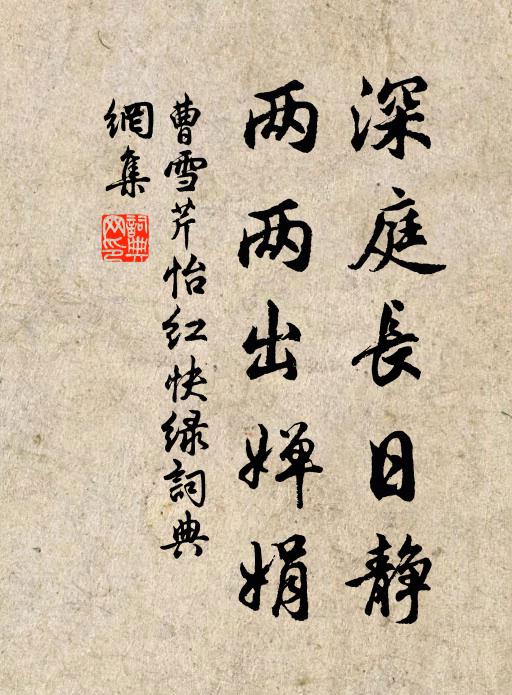 深庭長日静
两两出婵娟
曹雪芹怡红快绿詞典
網集
詞典
网印